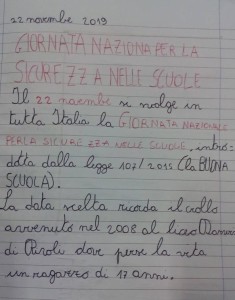 22 novembre 2019
GIORNATA NAZIONA PER LA
SICUREZZA NELLE SCUOLE
Il 22 novembre si svolge in
tutta Italia la GIORNATA NAZIONALE
PER LA SICUREZZA NELLE SCUOLE, intro=
dotta dalla legge 107/2015 (la BUONA
SCUOLA).
La data scelta ricorda il crollo
avvenuto nel 2008 al liceo
di Rivoli dove perse la vita
un ragazzo di 17 anni.